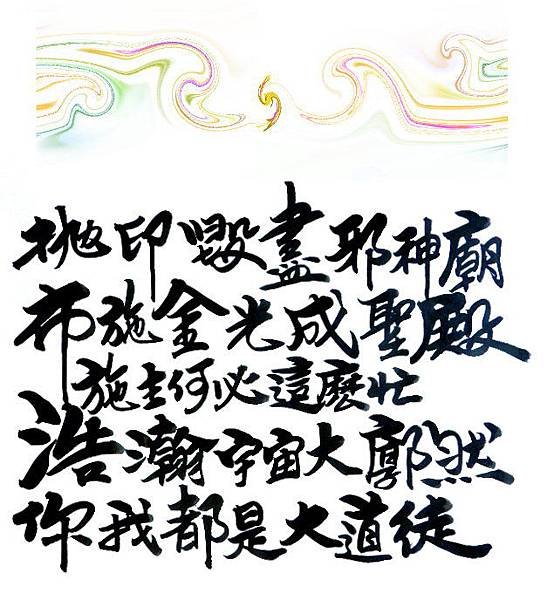 拋印毀盡邪神廟
布施金光成聖殿
施主何必這麼忙
浩瀚宇宙大鄭然
你我都是大道徒